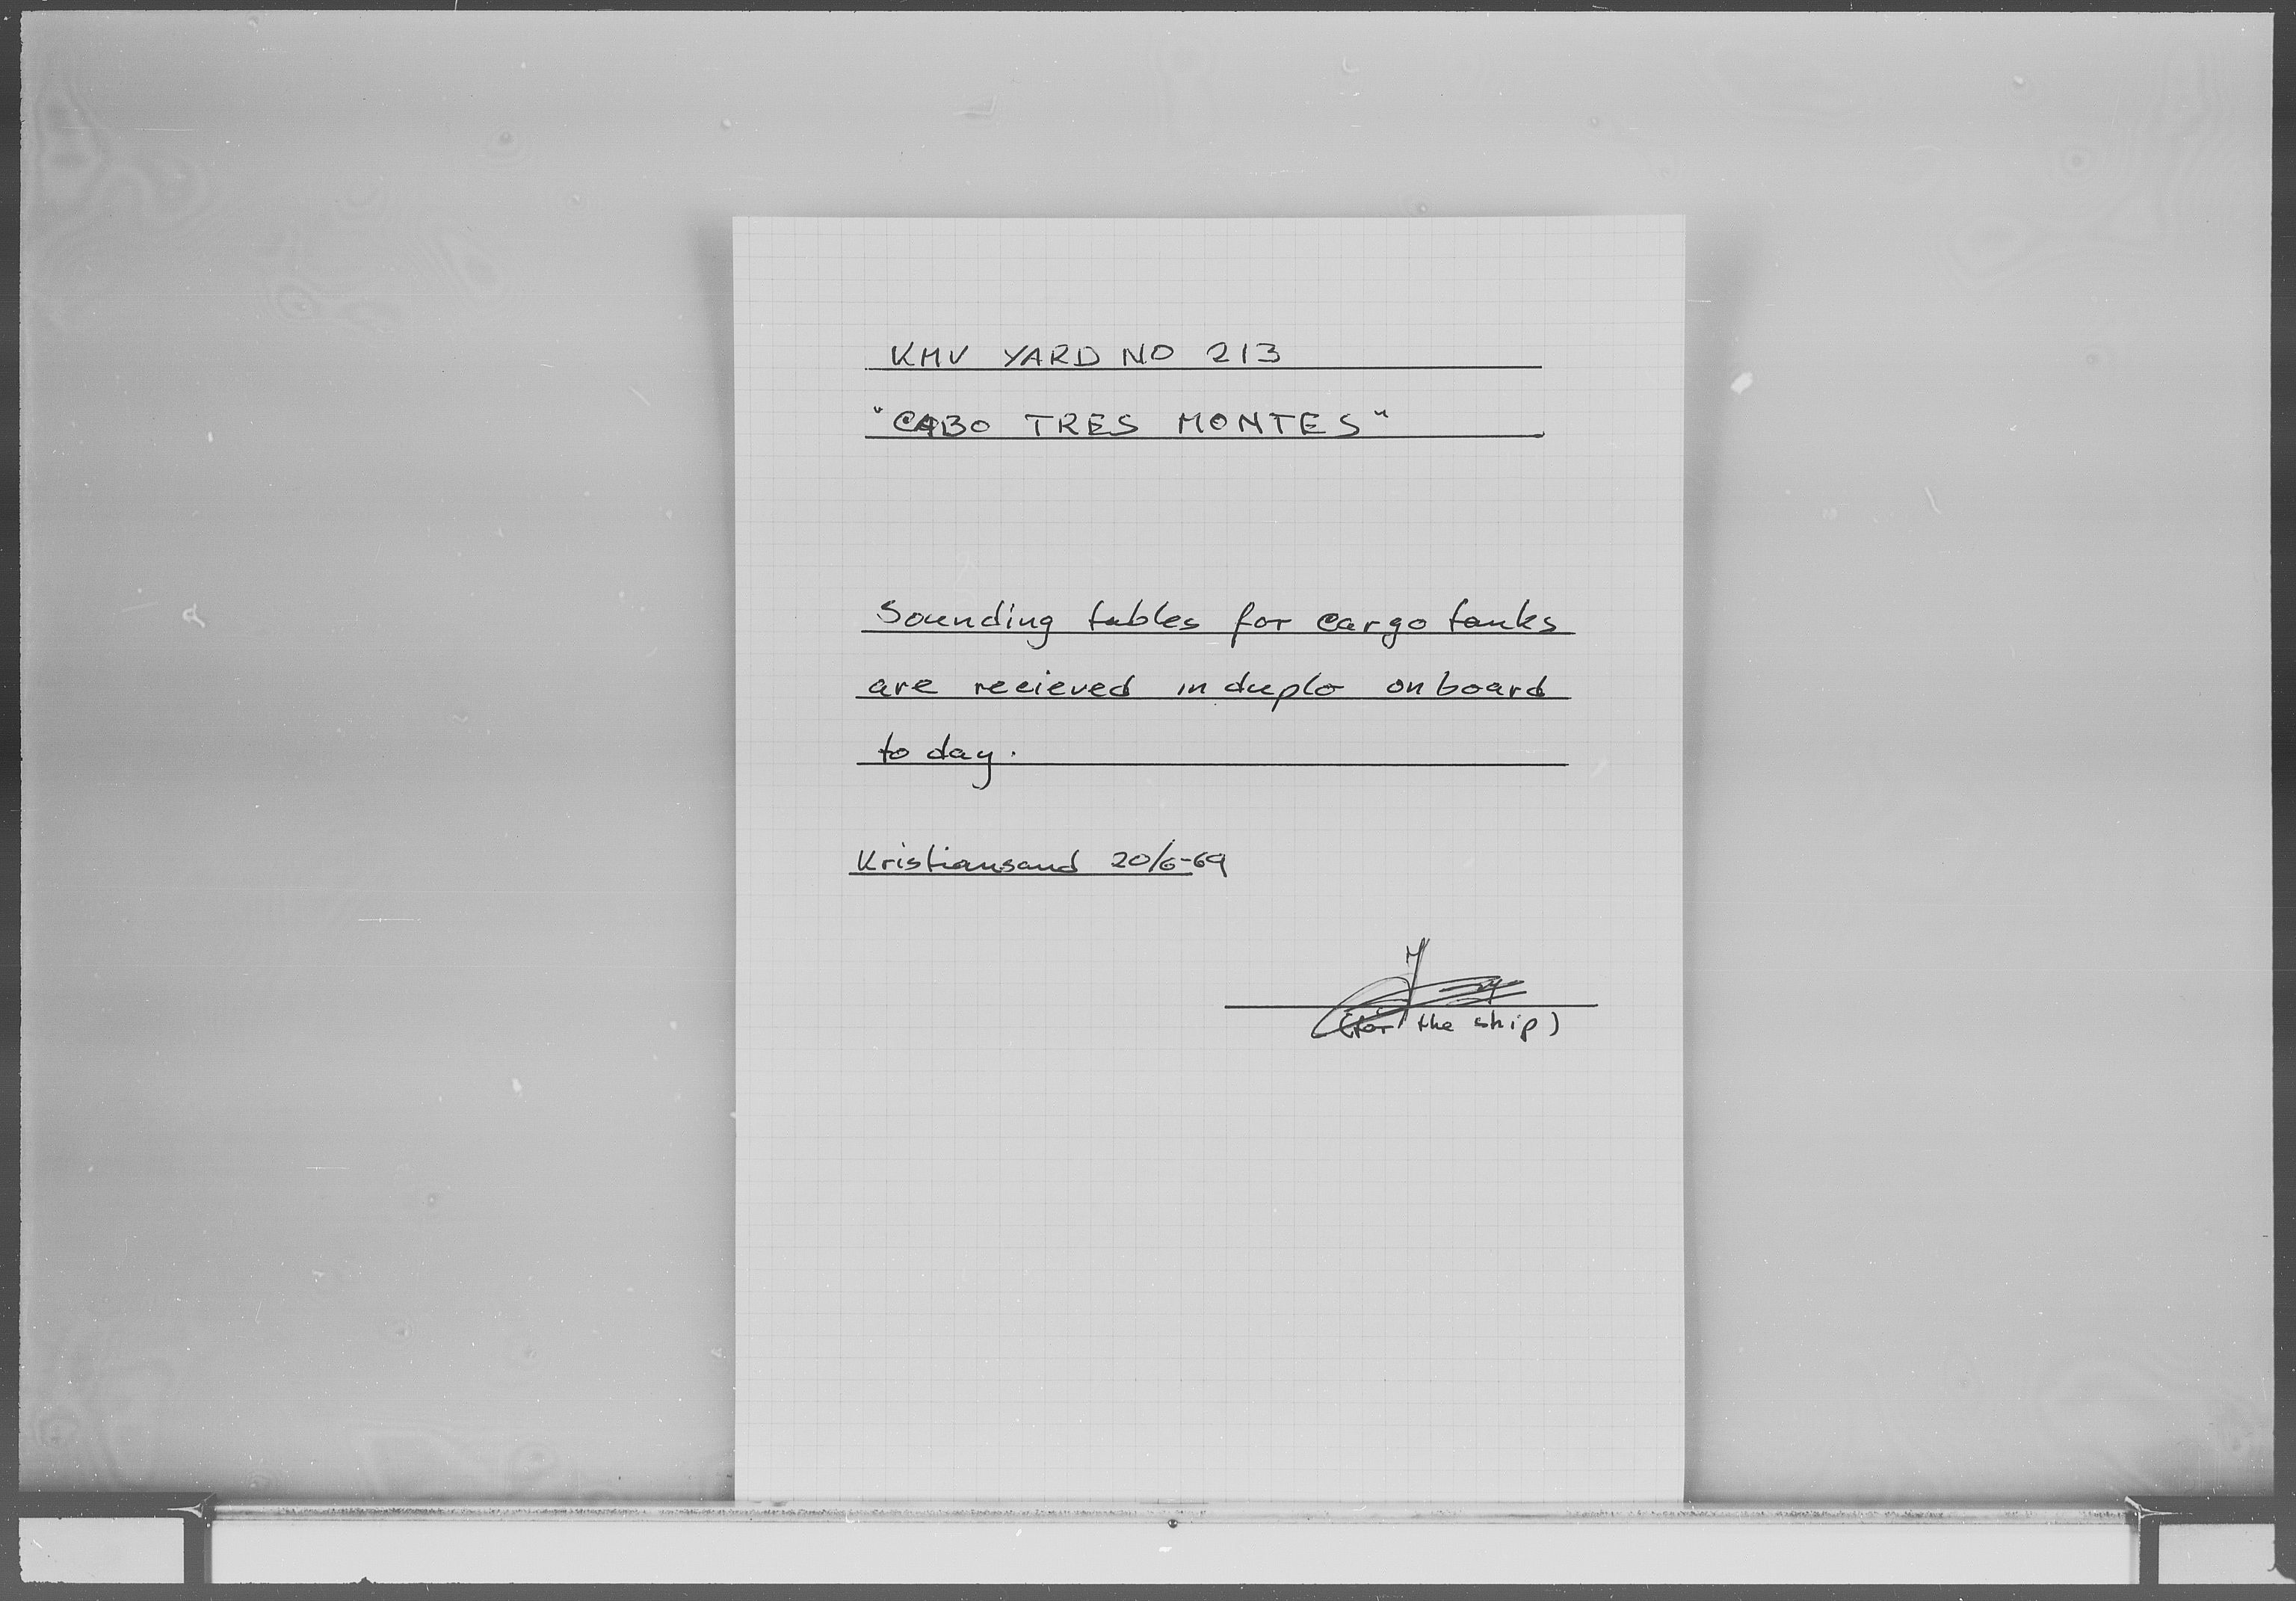 KMV YARD NO 213
"CABO TRES MONTES"
Sounding tables for cargo tanks
are recieved in duplo on board
to day.
Kristiansand 20/6-69
(for the ship)